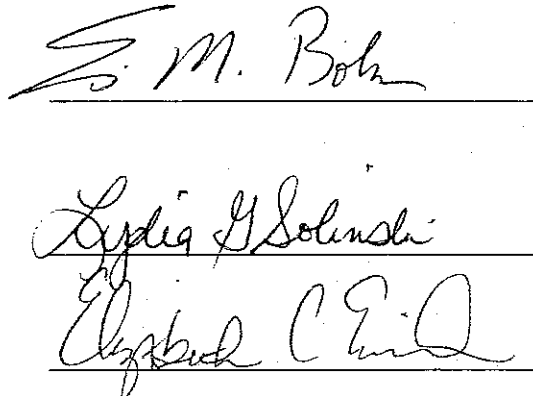 M. Bohn
Lydia G Solinski
Elizabeth C